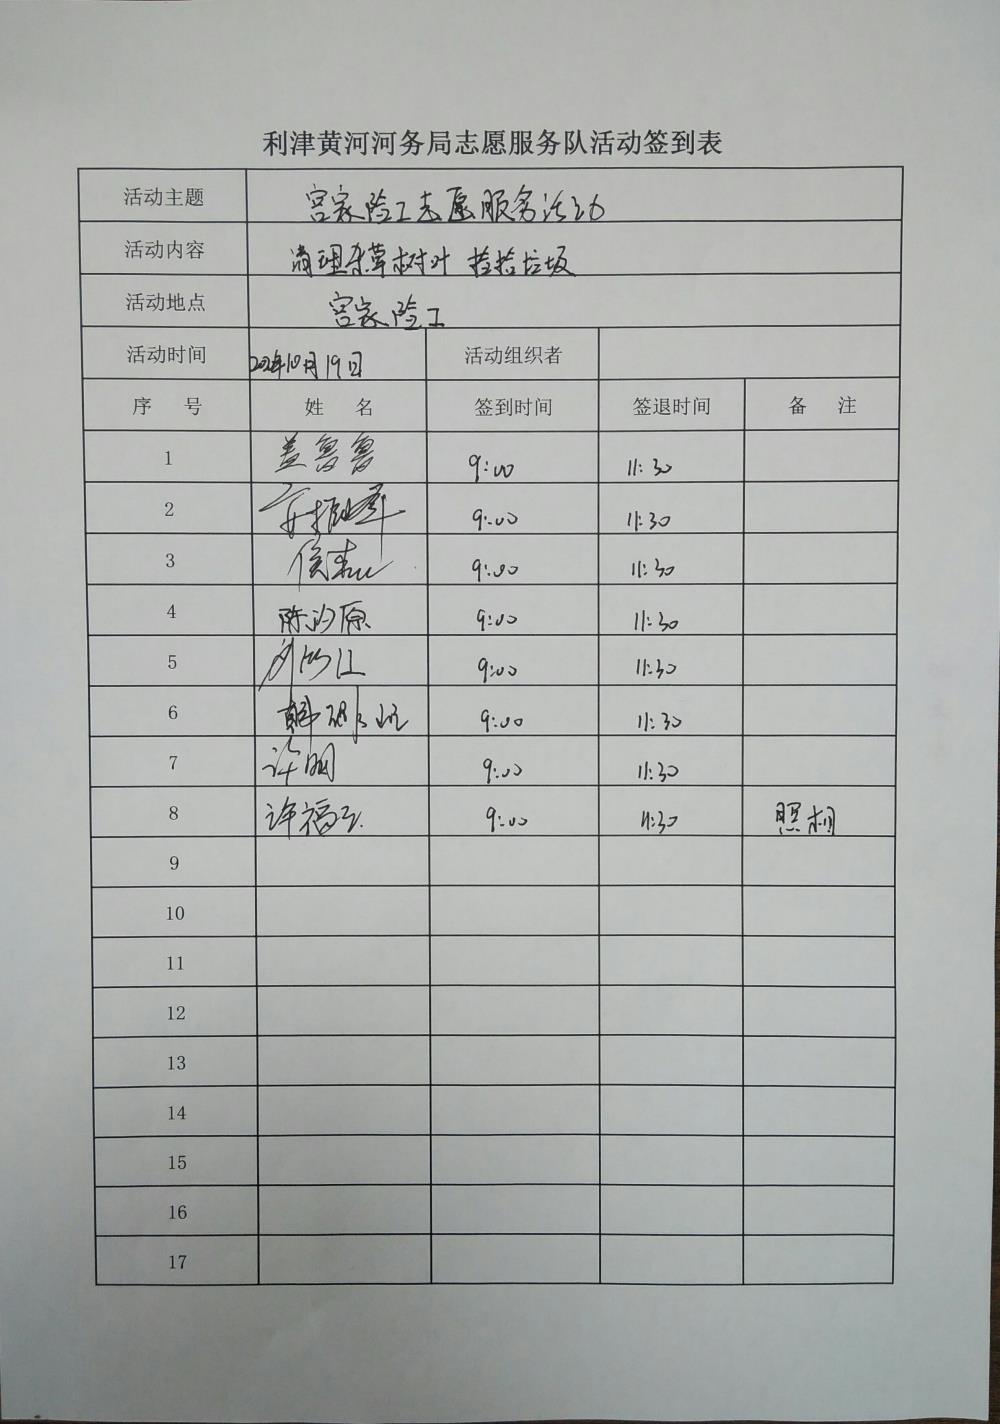 利津黄河河务局志愿服务队活动签到表
活动主题 宫家险工志愿服务活动
活动内容 清理杂草树叶 捡拾垃圾
活动地点 宫家险工
活动时间 10月19日 活动组织者
序 号 姓 名 签到时间 签退时间 备 注
1 盖鲁鲁 9:00 11:30
2 9:00 11:30
3 9:00 11:30
4 陈汐原 9:00 11:30
5 9:00 11:30
6 9:00 11:30
7 许明 9:00 11:30
8 许福玉 9:00 11:30 照相
9
10
11
12
13
14
15
16
17